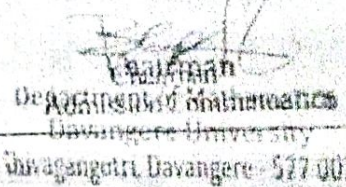 Chairman
Department of Mathematics
Davangere University
Shivagangotri, Davangere - 577 00